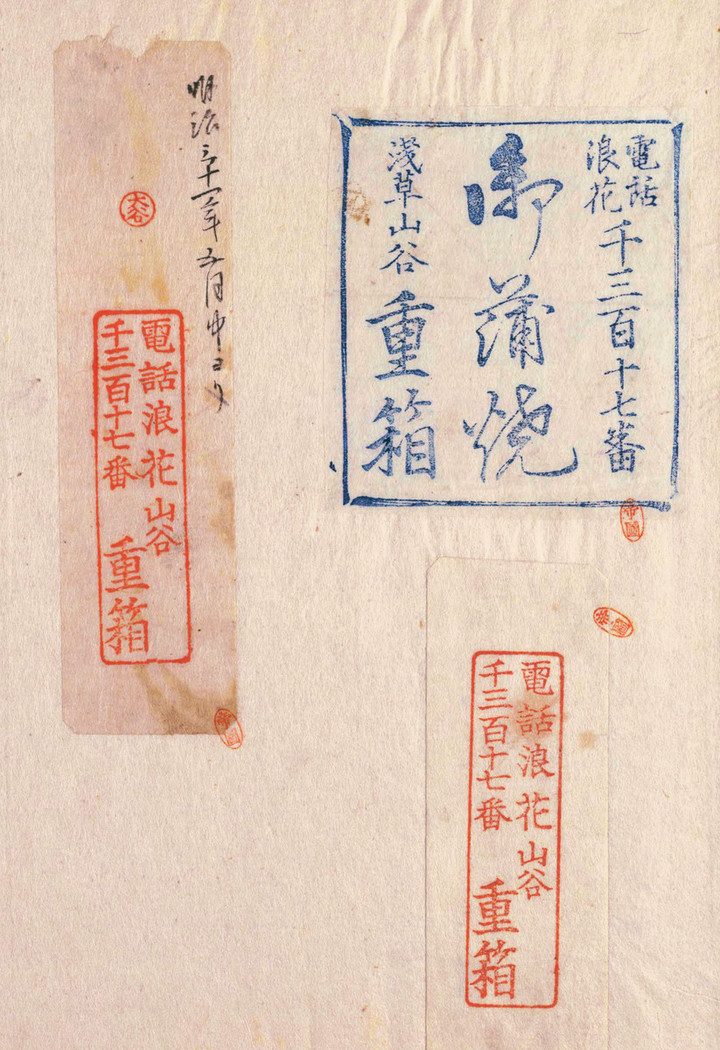 電話
浪花
千三百十七番
御蒲焼
淺草山谷
重箱
電話浪花山谷
千三百十七番
重箱
明治三十一年五月中ヨリ
電話浪花山谷
千三百十七番
重箱